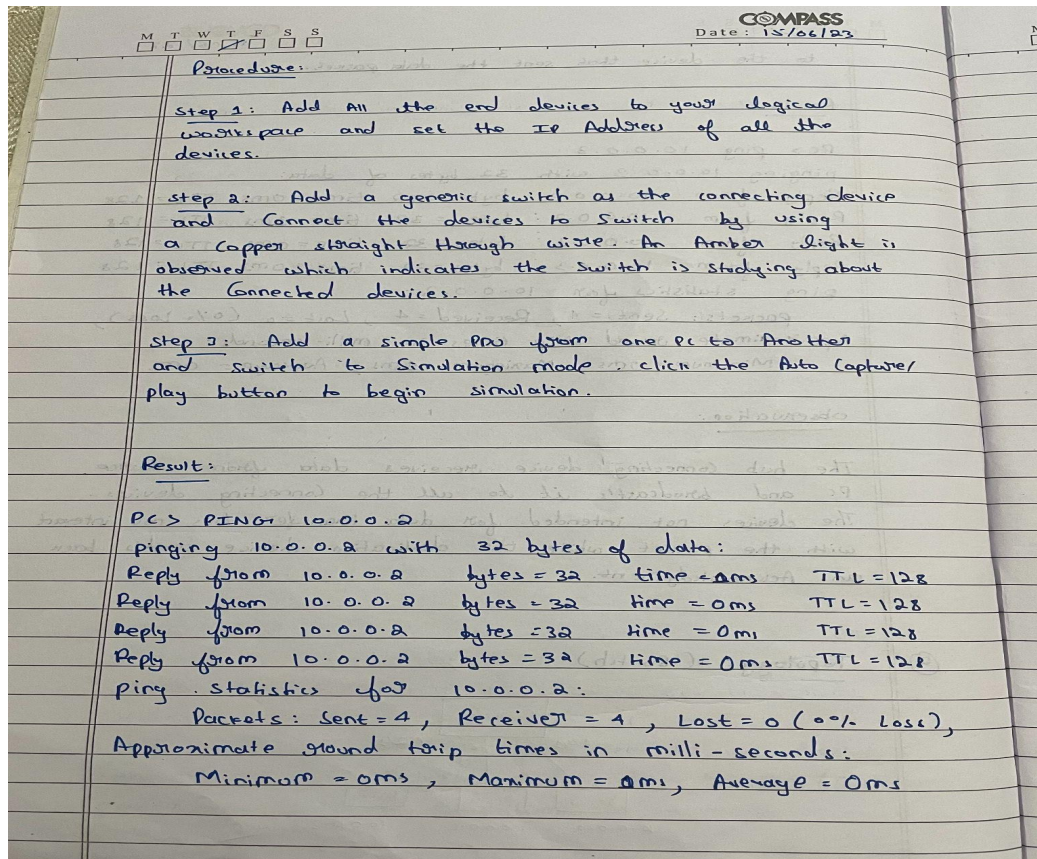 COMPASS
M T W T F S S
Date: 15/06/23
Procedure:
Step 1: Add All the end devices to your logical
workspace and set the IP Address of all the
devices.
Step 2: Add a generic switch as the connecting device
and Connect the devices to Switch by using
a Copper straight through wire. An Amber light is
observed which indicates the switch is studying about
the Connected devices.
Step 3: Add a simple PDU from one PC to Another
and Switch to Simulation mode. click the Auto Capture/
play button to begin simulation.
Result:
PC> PING 10.0.0.2
pinging 10.0.0.2 with 32 bytes of data:
Reply from 10.0.0.2 bytes = 32 time = 0ms TTL = 128
Reply from 10.0.0.2 bytes = 32 time = 0ms TTL = 128
Reply from 10.0.0.2 bytes = 32 time = 0ms TTL = 128
Reply from 10.0.0.2 bytes = 32 time = 0ms TTL = 128
ping statistics for 10.0.0.2:
Packets: Sent = 4, Receiver = 4, Lost = 0 (0% Loss),
Approximate round trip times in milli-seconds:
Minimum = 0ms, Maximum = 0ms, Average = 0ms